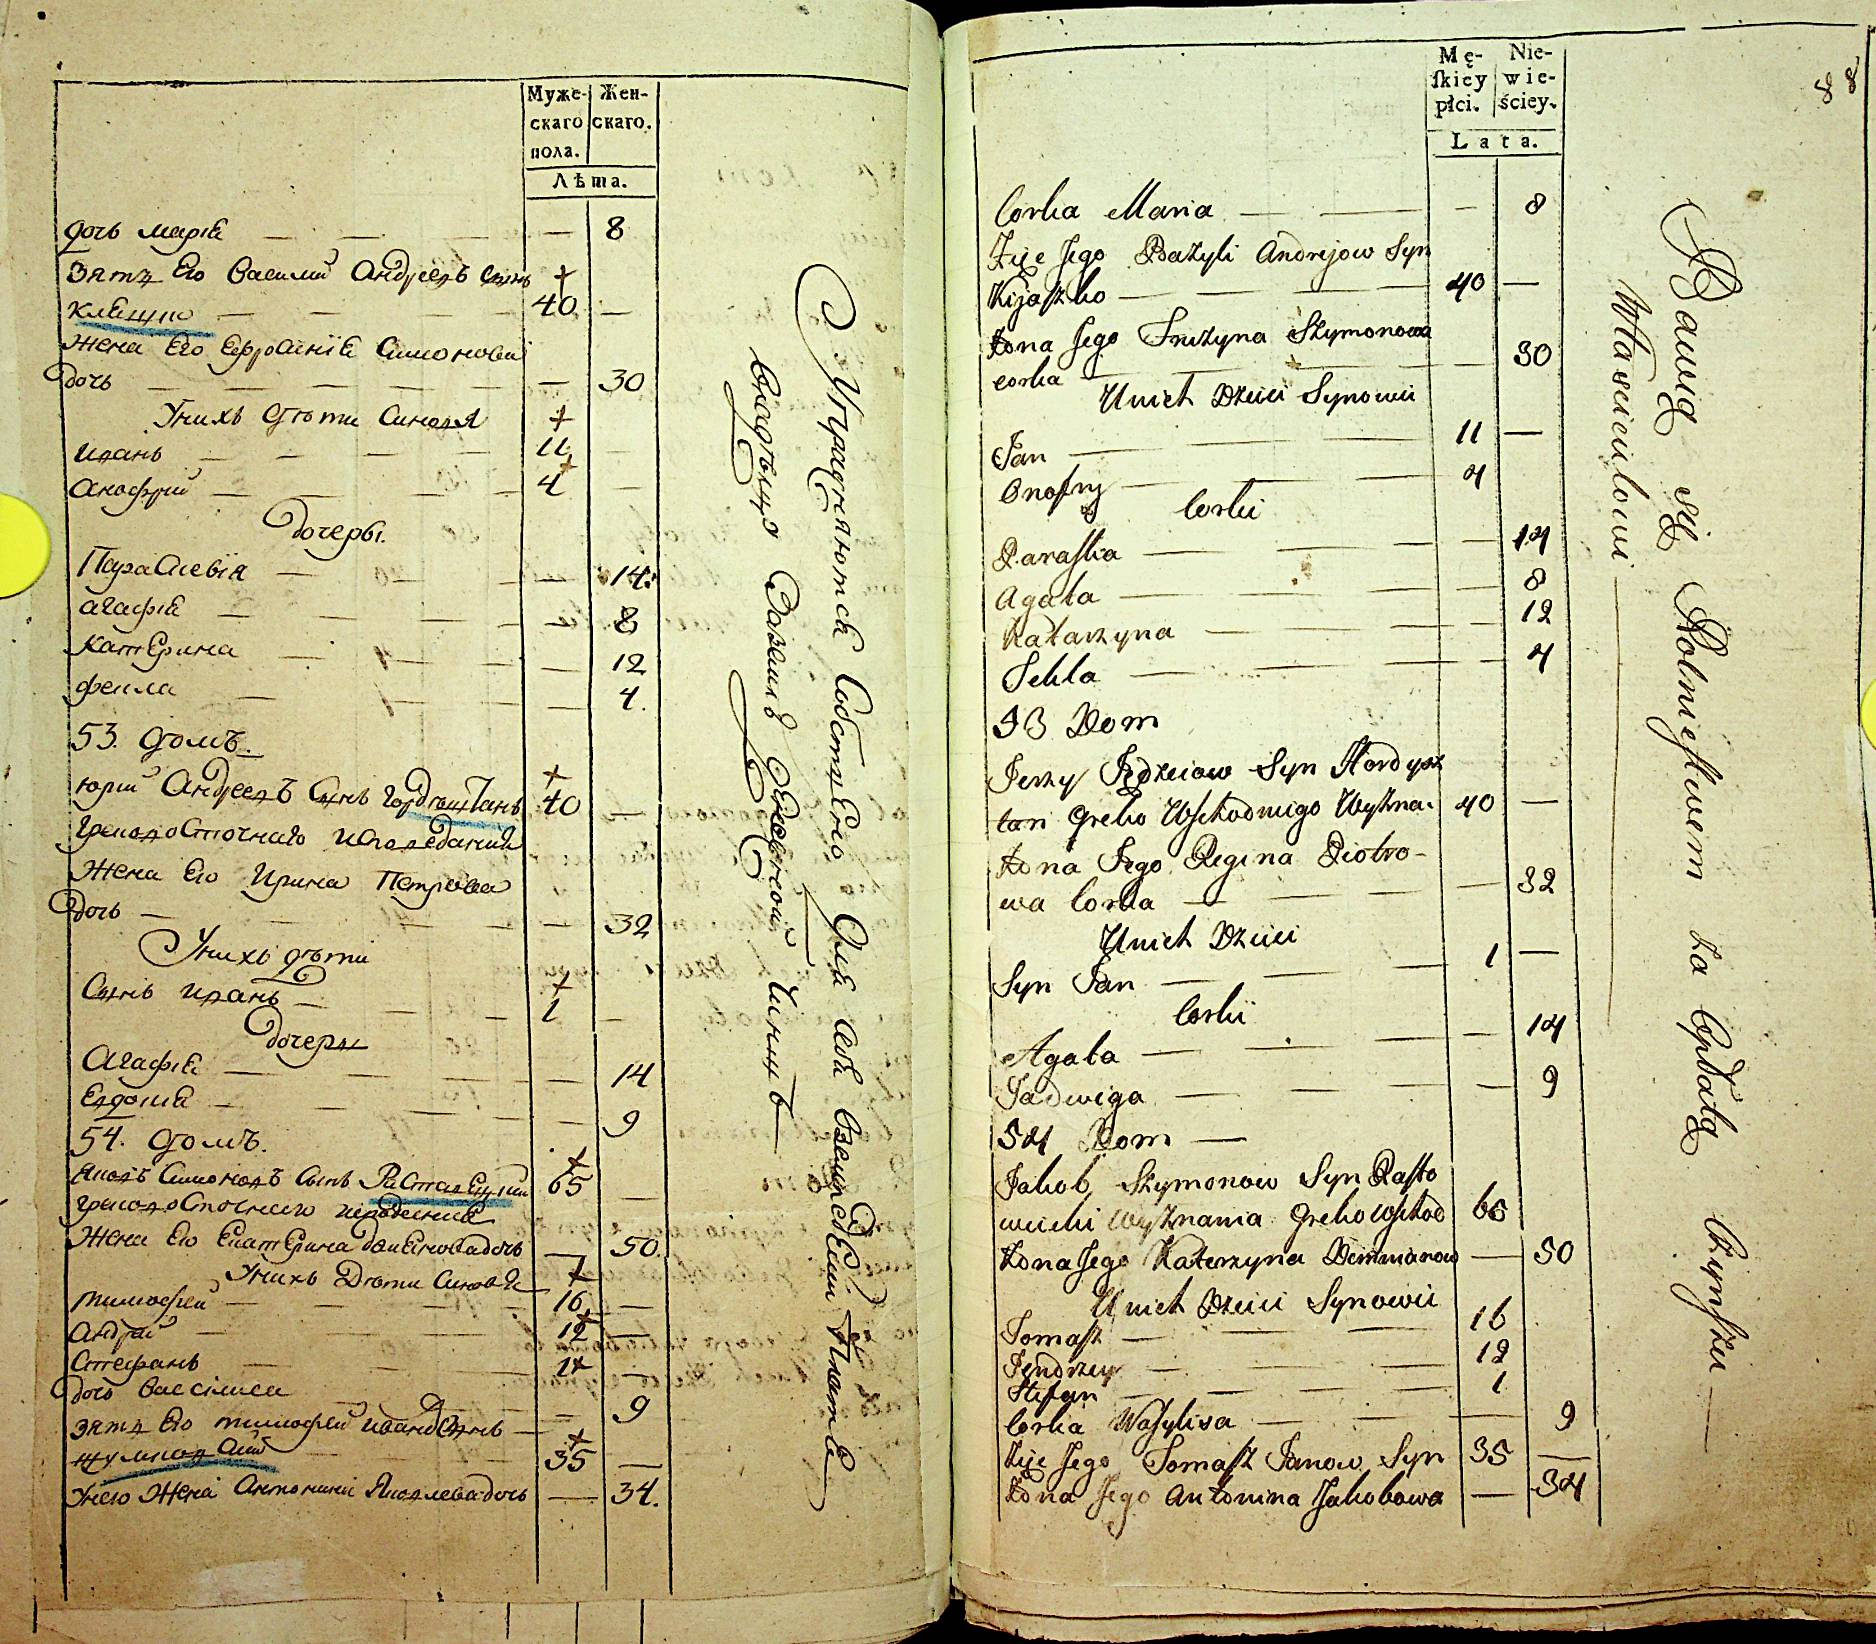 Муже-
скаго
пола.
Жен-
скаго.
Лѣта.
дочь марія — — — — 8
зять Его Василий Андреевъ сынъ
Кляшко — — — 40 —
жена Его Ефросинія Симонова
дочь — — — — 30
У нихъ дѣти Синовя
иванъ — — — 11 —
анофрий — — — 4 —
Дочеры.
Парасковія — — 14.
агафія — — 8
катерина — — 12
фекла — — 4.
53. домъ.
юрий Андреевъ Сынъ 40 —
грековосточнаго исповеданія
жена Его Ирина Петрова
дочь — — 32
У нихъ дѣти
Сынъ иванъ — — 1 —
дочеры
Агафія — — — 14
Евдокия — — — 9
54. домъ.
Яковъ Симоновъ Сынъ 65 —
грековосточнаго исповедания
жена Его Екатерина дочь — 50.
У нихъ Дѣти Синовя
тимофей — — 16 —
Андрей — — 12 —
Стефанъ — — 1 —
дочь Василиса — — 9
зять Его тимофей иванов Сынъ —
35 —
У него жена Антонина Яковлева дочь — 34.
Упражняются Собственно Для себя Хлебопашествомъ Платя
Владѣлцу Занемъ Денежной Чиншъ —
Mę-
ſkiey
płci.
Nie-
wie-
ściey.
Lata.
88
Corka Maria — — — 8
Zięc Jego Bazyli Andrejow Syn
Kijaszko — — — 40 —
Żona Jego Fruzyna Szymonowa
corka — — 30
U nich Dzieci Synowii
Jan — — 11 —
Onofry — — 4
Corki
Paraska — — — 14
Agata — — — 8
Katarzyna — — — 12
Tekla — — — 4
53 Dom
Jerzy Jędrzeiow Syn Hordysz
tan Greko Wschodniego Wyzna: 40 —
Żona Jego Regina Piotro-
wa Corka — — 32
U nich Dzieci
Syn Jan — — 1 —
Corki
Agata — — — 14
Jadwiga — — — 9
54 Dom —
Jakob Szymonow Syn Rasto
wiecki Wyznania Greko Wschod 65
Żona Jego Katerzyna Demianow — 50
U nich Dzieci Synowii
Tomasz — — 16
Jendrzey — — 12
Stefan — — 1
Corka Wasylisa — — — 9
Zięc Jego Tomasz Janow Syn 35 —
Żona Jego Antonina Jakobowa — 34
Bawią się Rolnictwem za Opłatą Czynszu —
Włascicielowi —